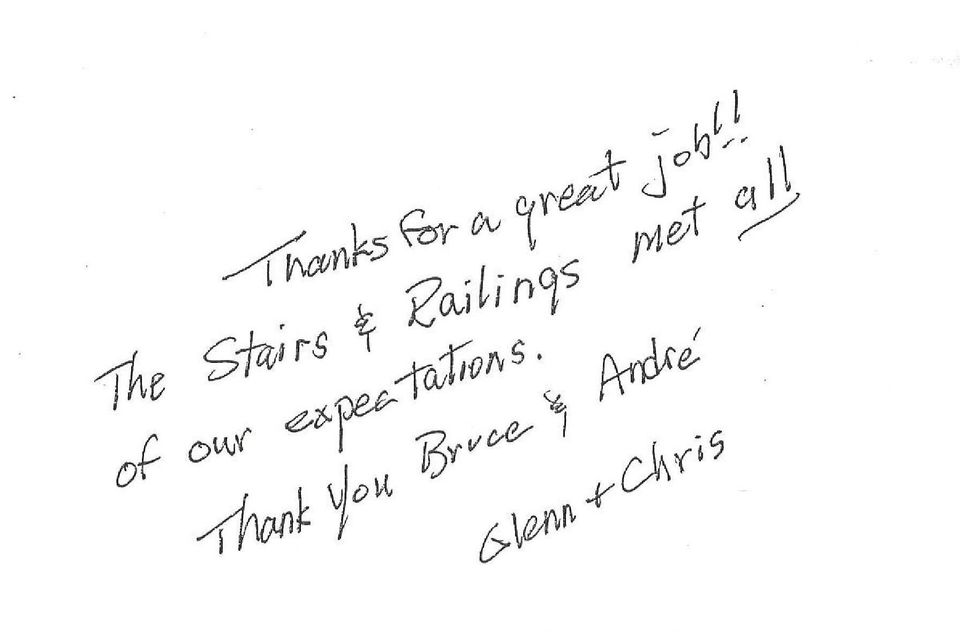 Thanks for a great job!!
The Stairs & Railings met all
of our expectations.
Thank you Bruce & André
Glenn + Chris